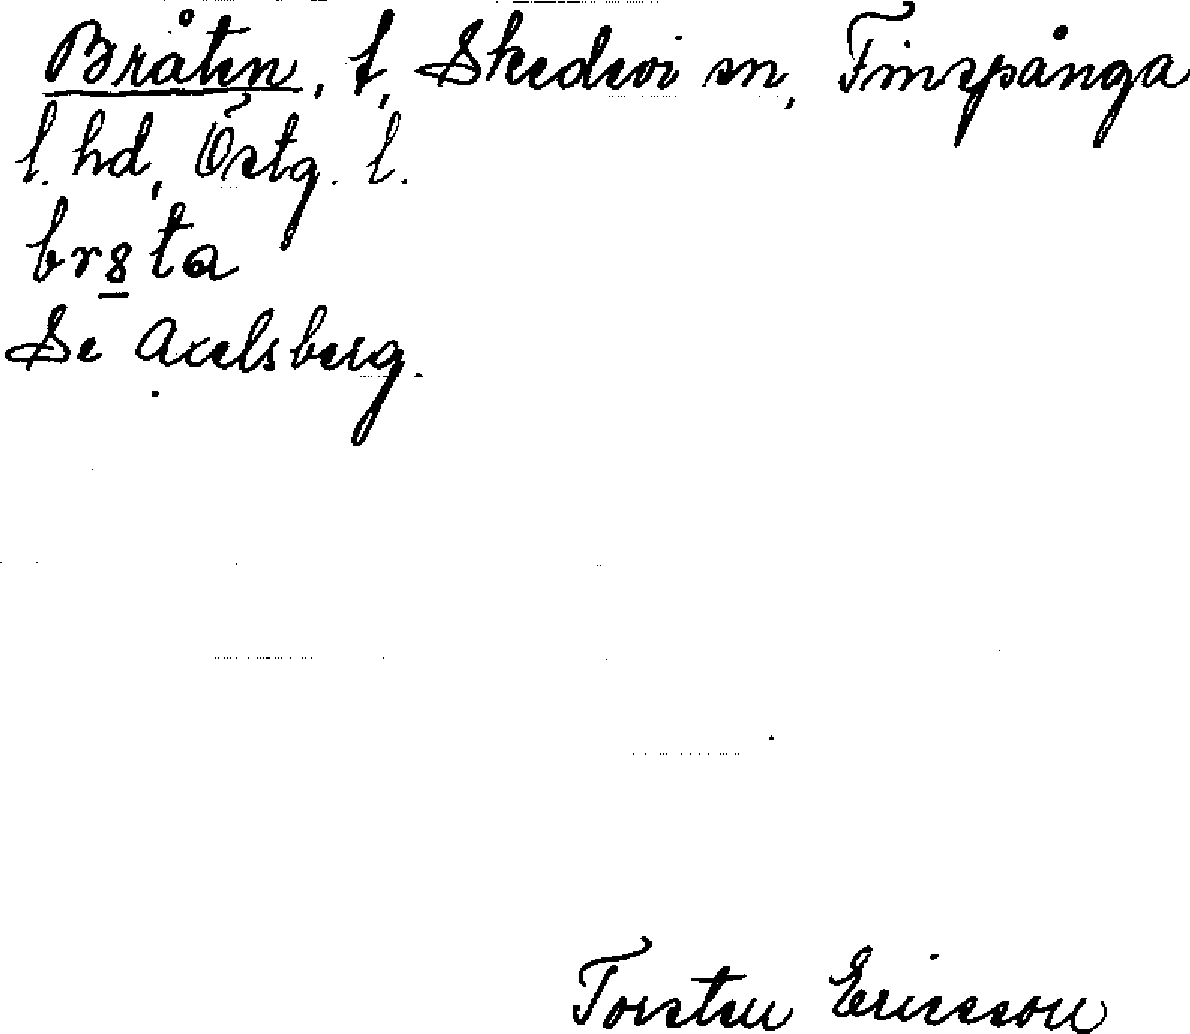 Bråten, t, Skedevi sn, Finspånga
l. hd, Östg. l.
br8ta
Se Axelsberg.
Torsten Ericsson